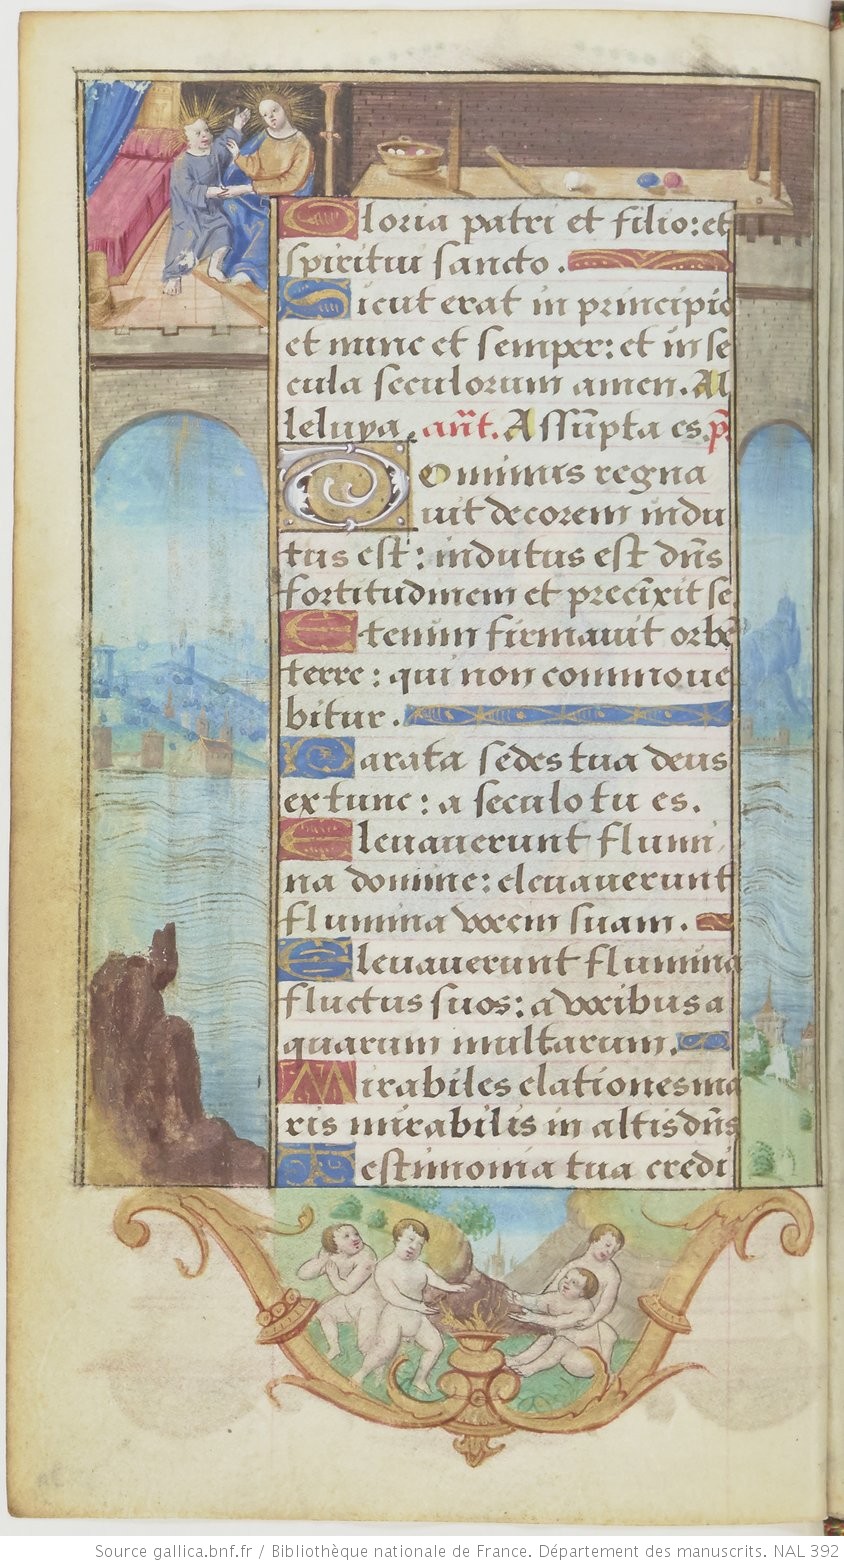 Gloria patri et filio: et
spiritui sancto.
Sicut erat in principio
et nunc et semper: et in se
cula seculorum amen. Al
leluya. añt. Assũpta es. p̃.
Dominus regna
uit decorem indu
tus est: indutus est dñs
fortitudinem et precĩxit se
Etenim firmauit orbẽ
terre: qui non commoue
bitur.
Parata sedes tua deus
ex tunc: a seculo tu es.
Eleuauerunt flumi
na domine: eleuauerunt
flumina vocem suam.
Eleuauerunt flumina
fluctus suos: a vocibus a
quarum multarum.
Mirabiles elationes ma
ris mirabilis in altis dñs
Testimonia tua credi
Source gallica.bnf.fr / Bibliothèque nationale de France. Département des manuscrits. NAL 392